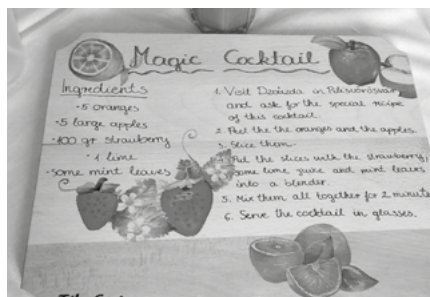 Magic Cocktail
Ingredients
•5 oranges
•5 large apples
•100 gr strawberry
•1 lime
•some mint leaves
1. Visit Dzsúzda in Pilisvörösvár
and ask for the special recipe
of this cocktail.
2. Peel the the oranges and the apples.
3. Slice them.
4. Put the slices with the strawberry,
some lime juice and mint leaves
into a blender.
5. Mix them all together for 2 minutes
6. Serve the cocktail in glasses.